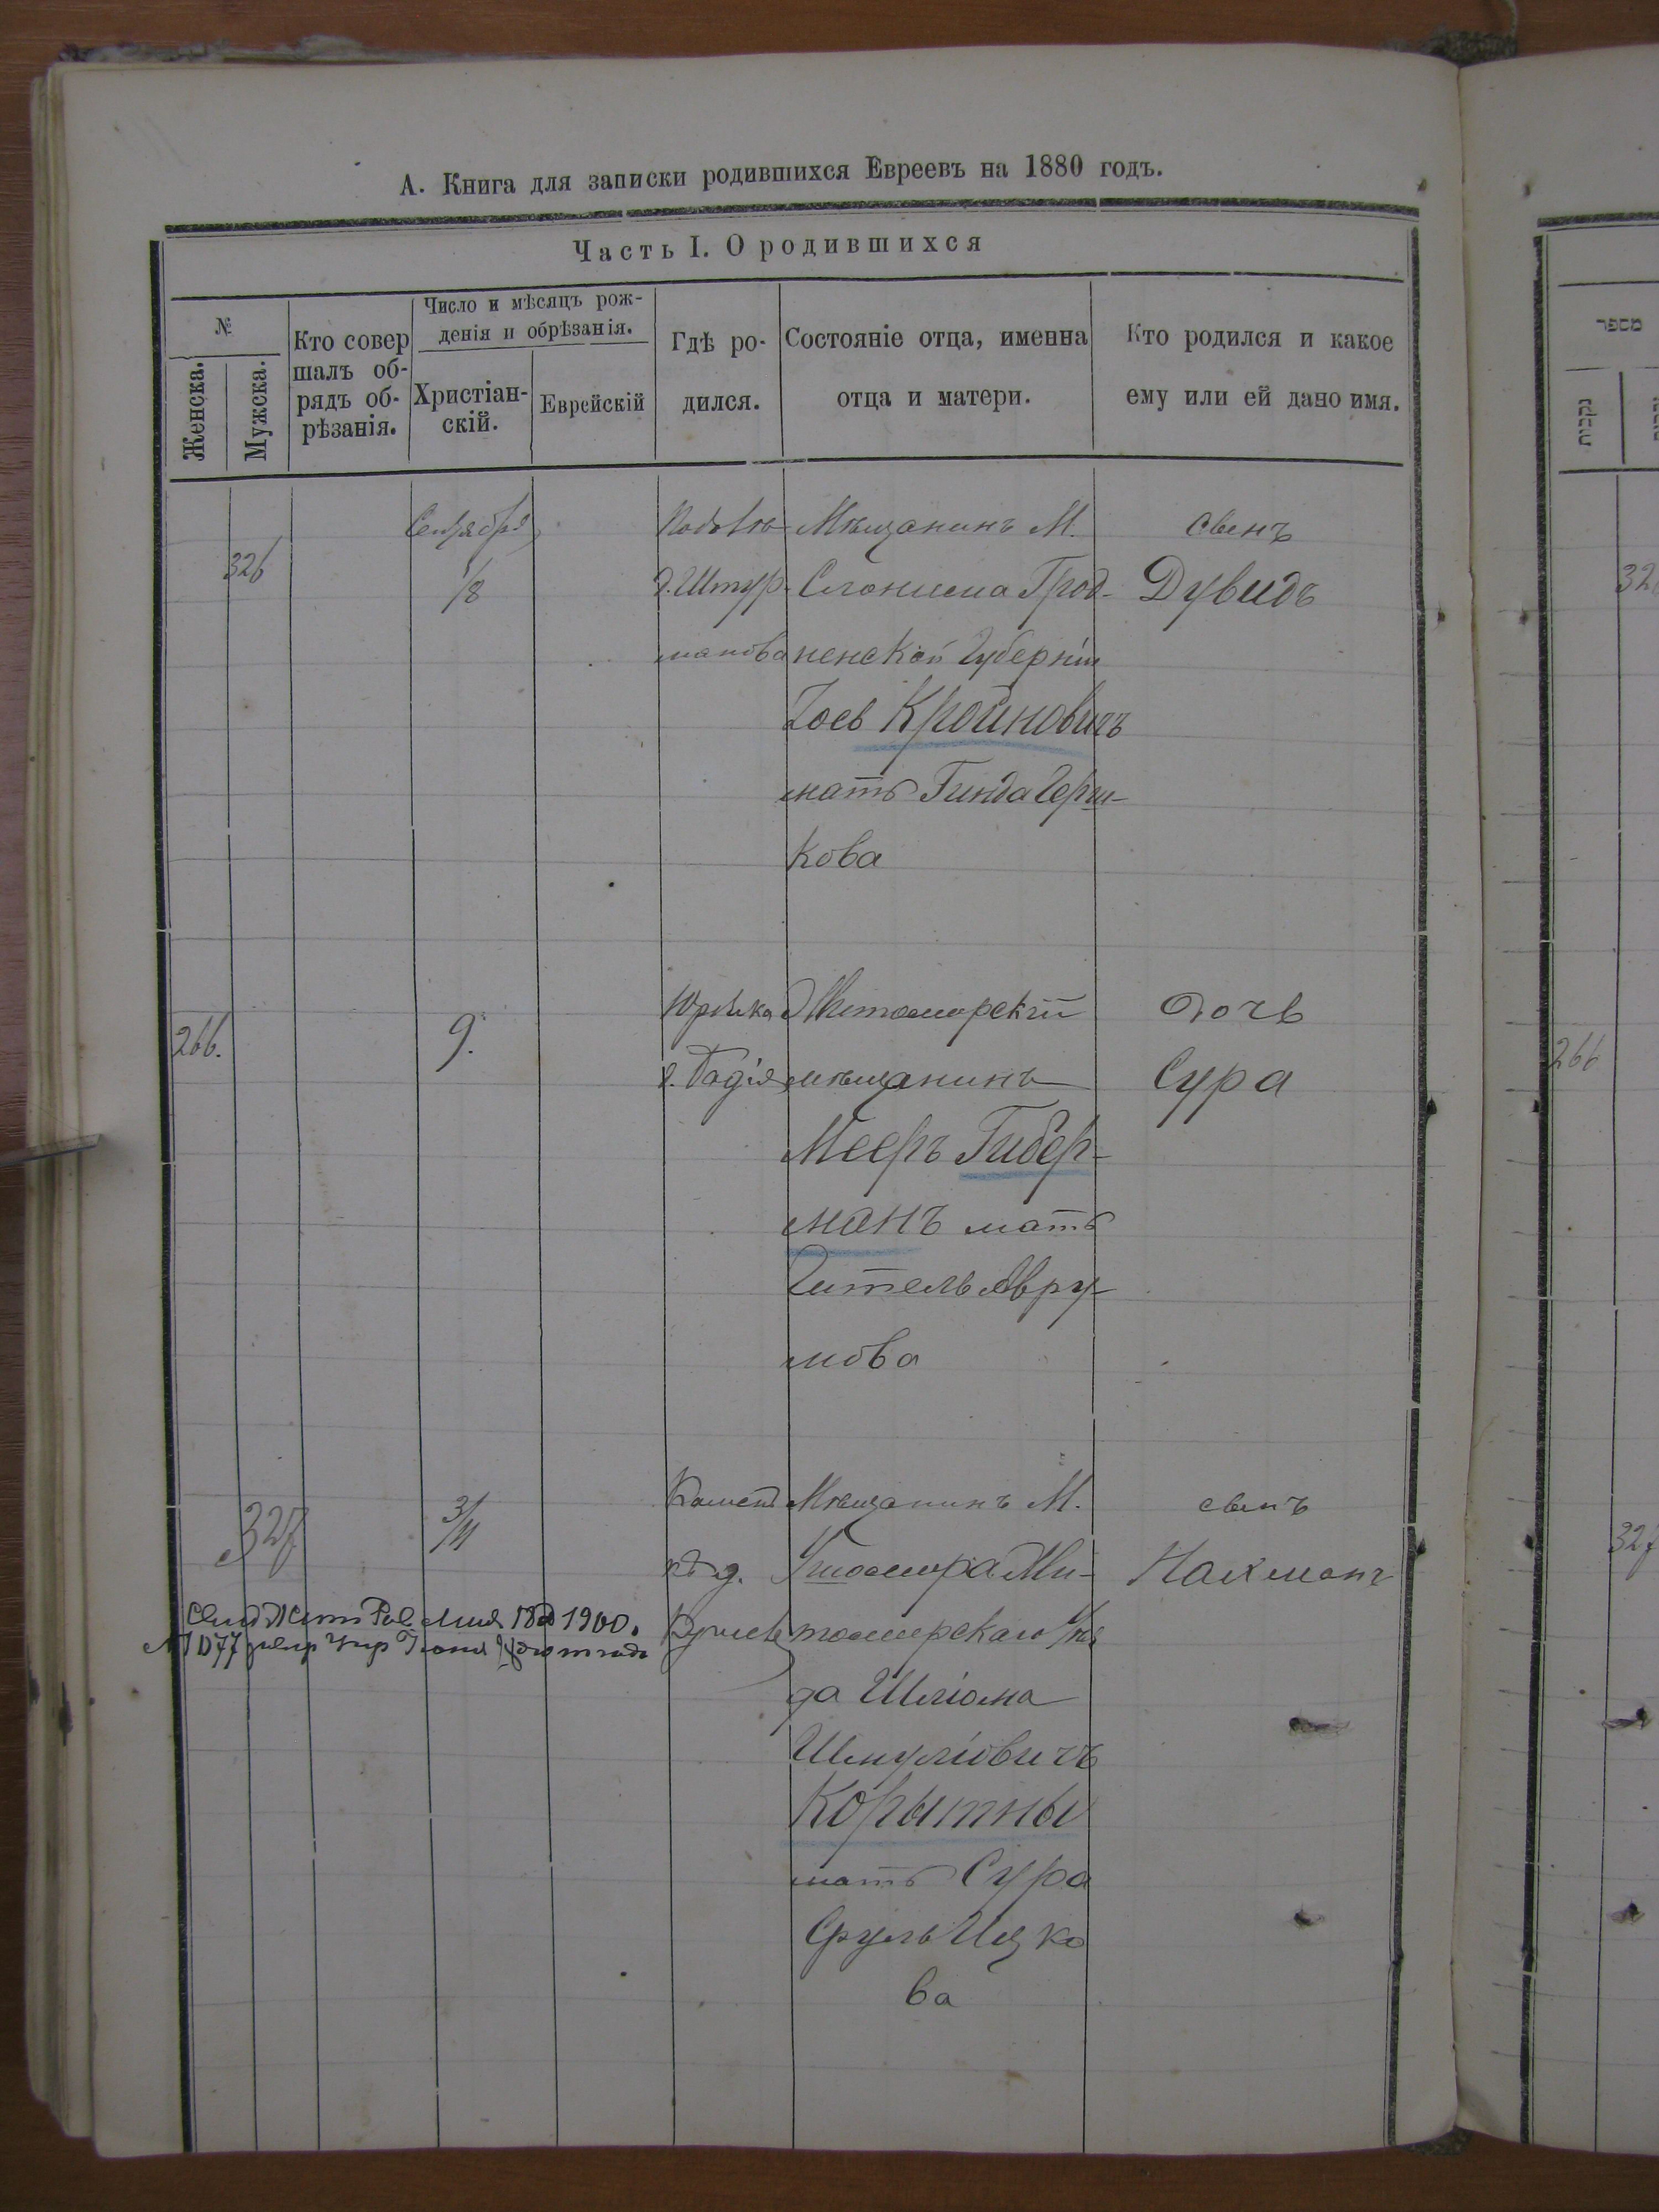 А. Книга для записки родившихся Евреевъ на 1880 годъ.
Часть I. О родившихся
№
Женска.
Мужска.
Кто совер
шалъ об-
рядъ об-
рѣзанія.
Число и мѣсяцъ рож-
денія и обрѣзанія.
Христіан-
скій.
Еврейскій
Гдѣ ро-
дился.
Состояніе отца, именна
отца и матери.
Кто родился и какое
ему или ей дано имя.
326
Сентября
1/8
д. Штур-
манова
Мѣщанинъ М.
Слонима Грод-
ненской Губерніи
Іосъ Кройновичъ
мать Гинда Герш-
кова
сынъ
Дувидъ
266.
9.
Юридика
Житомирскій
мѣщанинъ
Мееръ Гибер-
манъ мать
Гитель Авру-
мова
дочь
Сура
327
3/11
д.
Мѣщанинъ М.
Жи-
томирскаго Уѣз
да Шліома
Шмуліовичъ
Корытны
мать Сура
Сруль Ицко
ва
сынъ
Нахманъ
1900.
№ 1077
מספר
נקבות
326
266
327